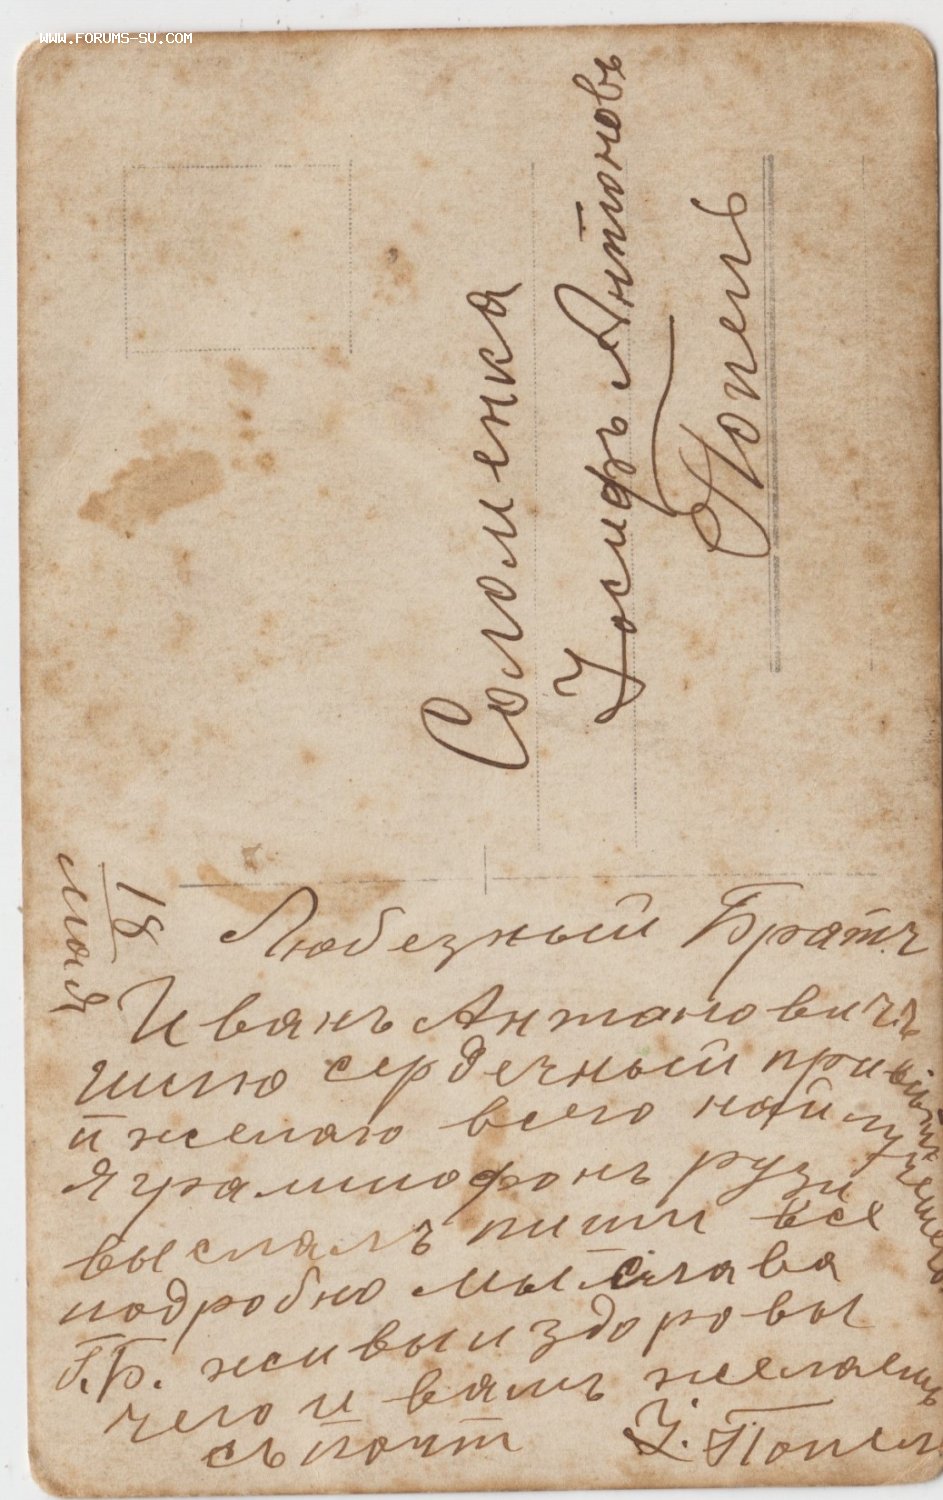 WWW.FORUMS-SU.COM
Соломенка
Іосифъ Антоновъ
Попель
18
мая
Любезный Братъ
Иванъ Антановичъ
шлю сердечный привѣтъ
и желаю всего найлучшего
я граммофонъ
выслалъ пиши всё
подробно мы слава
Г.Б. живы и здоровы
чего и вамъ желаемъ
съ почт
І. Попель